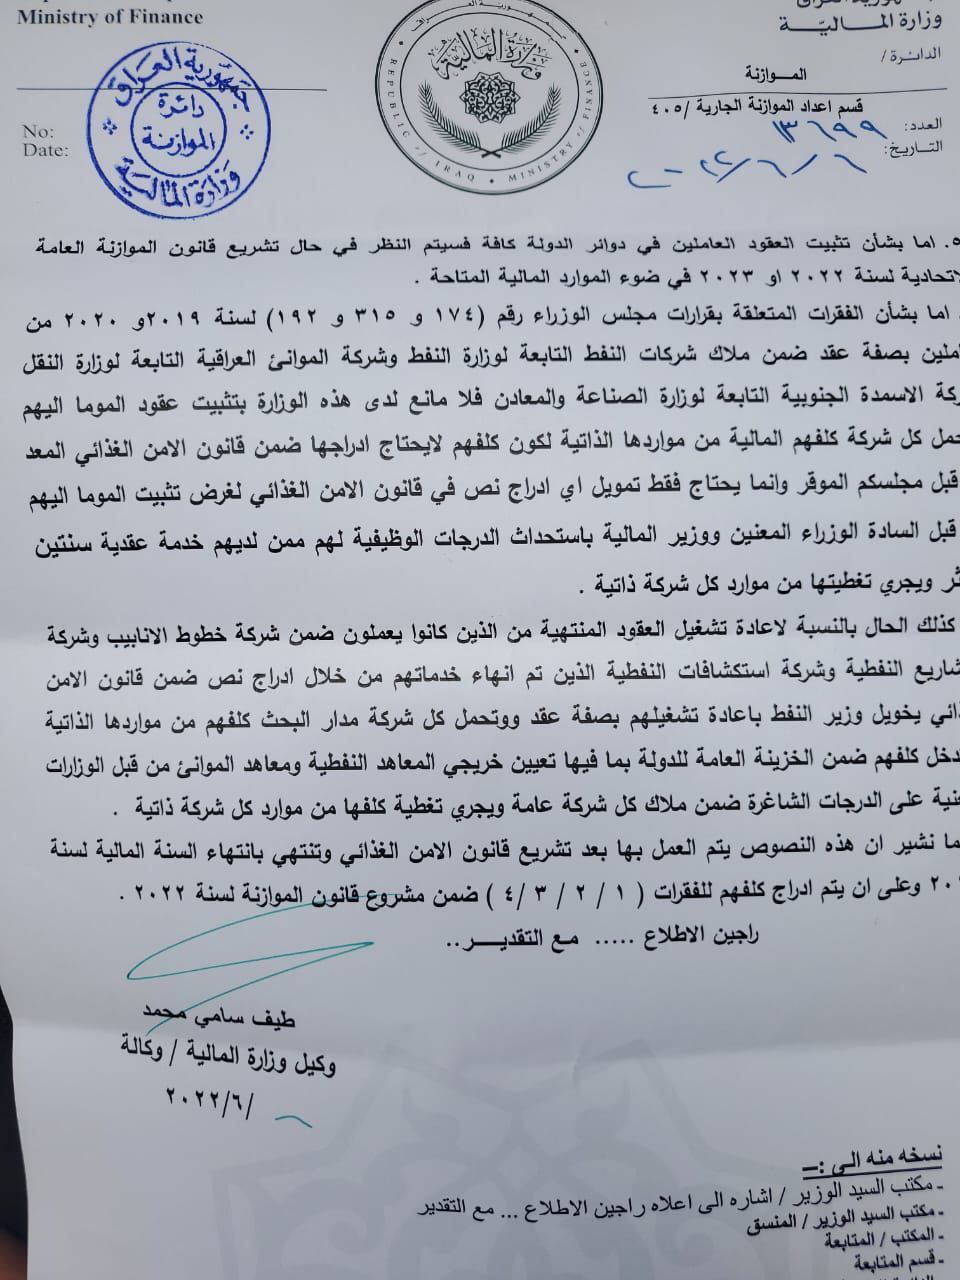 Ministry of Finance
وزارة المـاليّـة
الدائرة /
الموازنة
قسم اعداد الموازنة الجارية /٤٠٥
العدد: ١٣٦٩٩
التاريخ:
No:
Date:
جمهورية العراق
دائرة الموازنة
وزارة المالية
جمهورية العراق
وزارة المالية
REPUBLIC of IRAQ • MINISTRY of FINANCE
٥. اما بشأن تثبيت العقود العاملين في دوائر الدولة كافة فسيتم النظر في حال تشريع قانون الموازنة العامة
لاتحادية لسنة ٢٠٢٢ او ٢٠٢٣ في ضوء الموارد المالية المتاحة .
. اما بشأن الفقرات المتعلقة بقرارات مجلس الوزراء رقم (١٧٤ و ٣١٥ و ١٩٢) لسنة ٢٠١٩و ٢٠٢٠ من
املين بصفة عقد ضمن ملاك شركات النفط التابعة لوزارة النفط وشركة الموانئ العراقية التابعة لوزارة النقل
ركة الاسمدة الجنوبية التابعة لوزارة الصناعة والمعادن فلا مانع لدى هذه الوزارة بتثبيت عقود الموما اليهم
حمل كل شركة كلفهم المالية من مواردها الذاتية لكون كلفهم لايحتاج ادراجها ضمن قانون الامن الغذائي المعد
قبل مجلسكم الموقر وانما يحتاج فقط تمويل اي ادراج نص في قانون الامن الغذائي لغرض تثبيت الموما اليهم
قبل السادة الوزراء المعنين ووزير المالية باستحداث الدرجات الوظيفية لهم ممن لديهم خدمة عقدية سنتين
ثر ويجري تغطيتها من موارد كل شركة ذاتية .
كذلك الحال بالنسبة لاعادة تشغيل العقود المنتهية من الذين كانوا يعملون ضمن شركة خطوط الانابيب وشركة
شاريع النفطية وشركة استكشافات النفطية الذين تم انهاء خدماتهم من خلال ادراج نص ضمن قانون الامن
ذائي يخويل وزير النفط باعادة تشغيلهم بصفة عقد ووتحمل كل شركة مدار البحث كلفهم من مواردها الذاتية
دخل كلفهم ضمن الخزينة العامة للدولة بما فيها تعيين خريجي المعاهد النفطية ومعاهد الموانئ من قبل الوزارات
عنية على الدرجات الشاغرة ضمن ملاك كل شركة عامة ويجري تغطية كلفها من موارد كل شركة ذاتية .
ما نشير ان هذه النصوص يتم العمل بها بعد تشريع قانون الامن الغذائي وتنتهي بانتهاء السنة المالية لسنة
وعلى ان يتم ادراج كلفهم للفقرات ( ١ / ٢ / ٣ /٤ ) ضمن مشروع قانون الموازنة لسنة ٢٠٢٢ .
راجين الاطلاع ..... مع التقديـــر..
طيف سامي محمد
وكيل وزارة المالية / وكالة
/٦/٢٠٢٢
نسخه منه الى :ــ
- مكتب السيد الوزير / اشاره الى اعلاه راجين الاطلاع ... مع التقدير
- مكتب السيد الوزير / المنسق
- المكتب / المتابعة
- قسم المتابعة